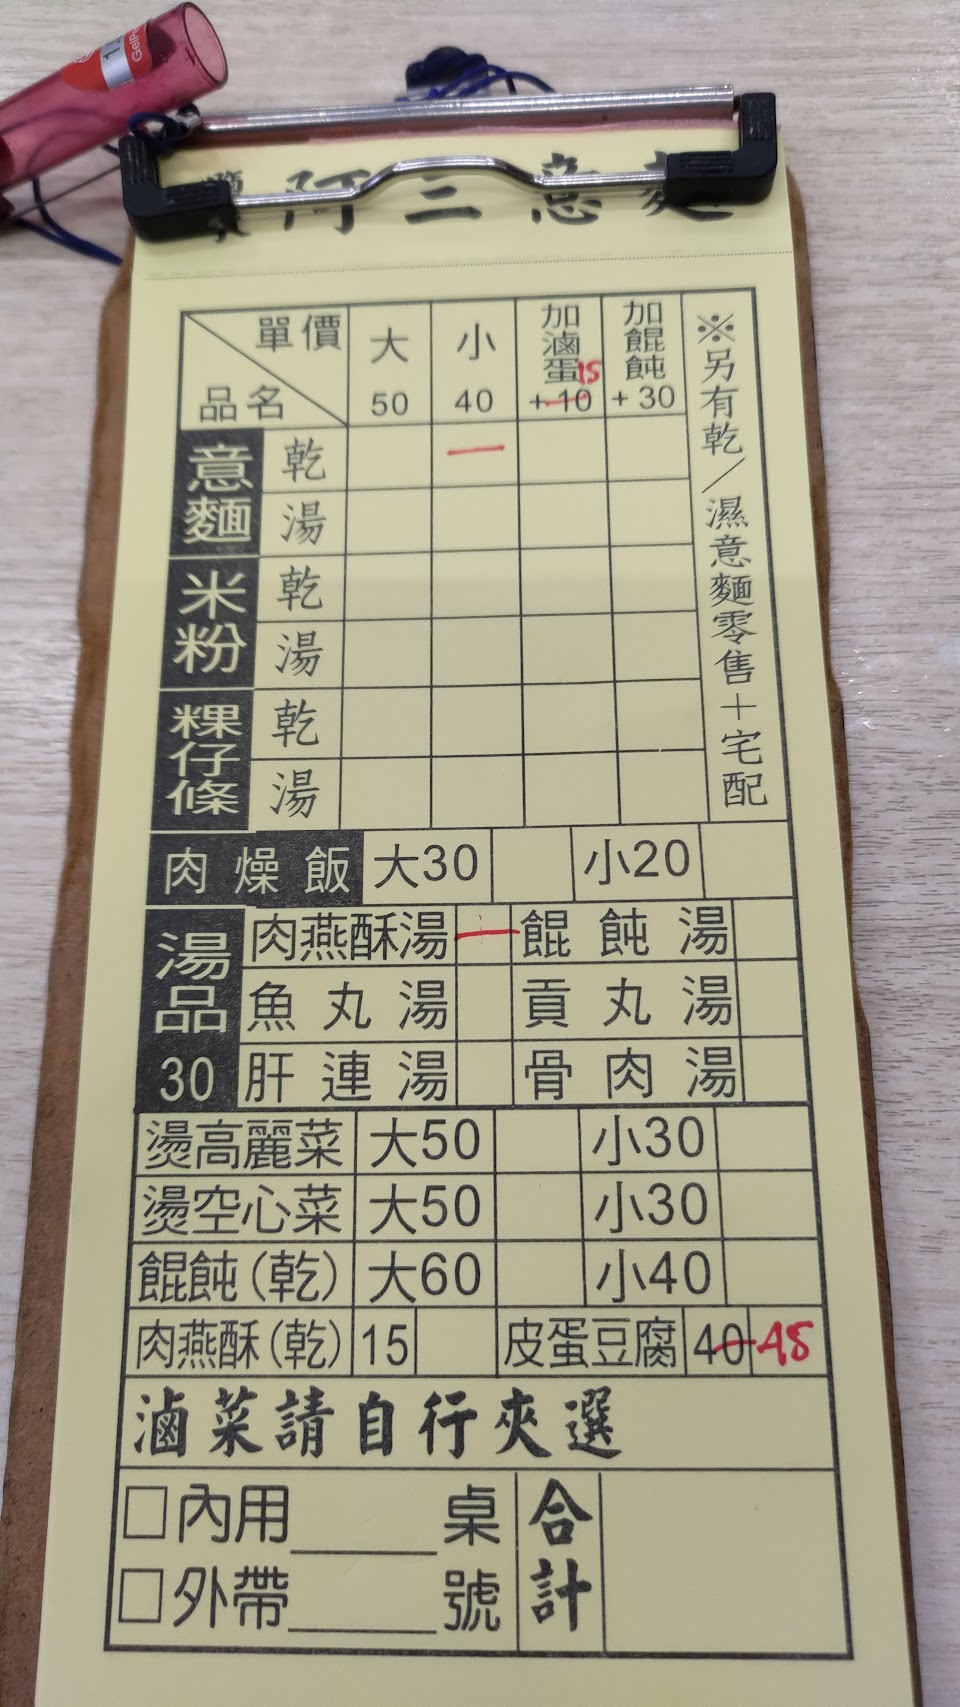 阿三意麵
單價
品名
大
50
小
40
加滷蛋
+10 15
加餛飩
+30
※另有乾／濕意麵零售＋宅配
意麵 乾 一
湯
米粉 乾
湯
粿仔條 乾
湯
肉燥飯 大30 小20
湯品 30
肉燕酥湯 一 餛飩湯
魚丸湯 貢丸湯
肝連湯 骨肉湯
燙高麗菜 大50 小30
燙空心菜 大50 小30
餛飩(乾) 大60 小40
肉燕酥(乾) 15 皮蛋豆腐 40 45
滷菜請自行夾選
□內用____桌
□外帶____號
合計